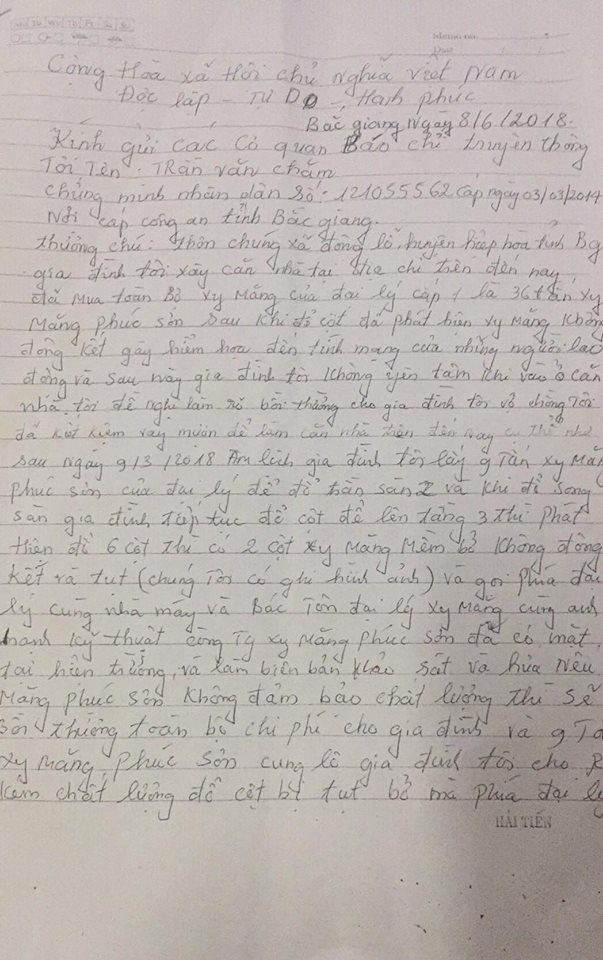 Cộng Hòa xã Hội chủ nghĩa việt Nam
Độc lập - Tự DO - Hạnh phúc
Bắc giang Ngày 8/6/2018.
Kính gửi các cơ quan Báo chí truyền thông
Tôi Tên: TRần văn chăm
chứng minh nhân dân số: 121055562 cấp ngày 03/03/2014
Nơi cấp công an tỉnh Bắc giang.
thường chú: thôn chúng xã đông lỗ, huyện hiệp hòa tỉnh Bg
gia đình tôi xây căn nhà tại địa chỉ trên đến nay
đã mua toàn Bộ xy Măng của đại lý cấp 1 là 36 tấn xy
Măng phúc sơn sau khi đổ cột đã phát hiện xy măng không
đông kết gây hiểm họa đến tính mạng của những người lao
động và sau này gia đình tôi không yên tâm khi vào ở căn
nhà, tôi đề nghị làm rõ bồi thường cho gia đình tôi vợ chồng tôi
đã kiệm vay mượn để làm căn nhà trên đến nay cụ thể như
sau ngày 9/3/2018 Âm lịch gia đình tôi lấy 9 Tấn xy Măng
phúc sơn của đại lý để đổ trần sàn 2 và khi đổ song
sàn gia đình tiếp tục đổ cột để lên tầng 3 thì phát
hiện đổ 6 cột thì có 2 cột xy măng mềm bở không đông
kết và tụt (chúng tôi có ghi hình ảnh) và gọi phía đại
lý cùng nhà máy và Bác Tôn đại lý xy măng cùng anh
hạnh kỹ thuật công Ty xy măng phúc sơn đã có mặt
tại hiện trường, và làm biên bản khảo sát và hứa nếu
Măng phúc sơn không đảm bảo chất lượng thì sẽ
Bồi thường toàn bộ chi phí cho gia đình và 9 Tấ
xy măng phúc sơn cung lô gia đình tôi cho
kém chất lượng đổ cột bị tụt bở mà phía đại lý
HẢI TIẾN